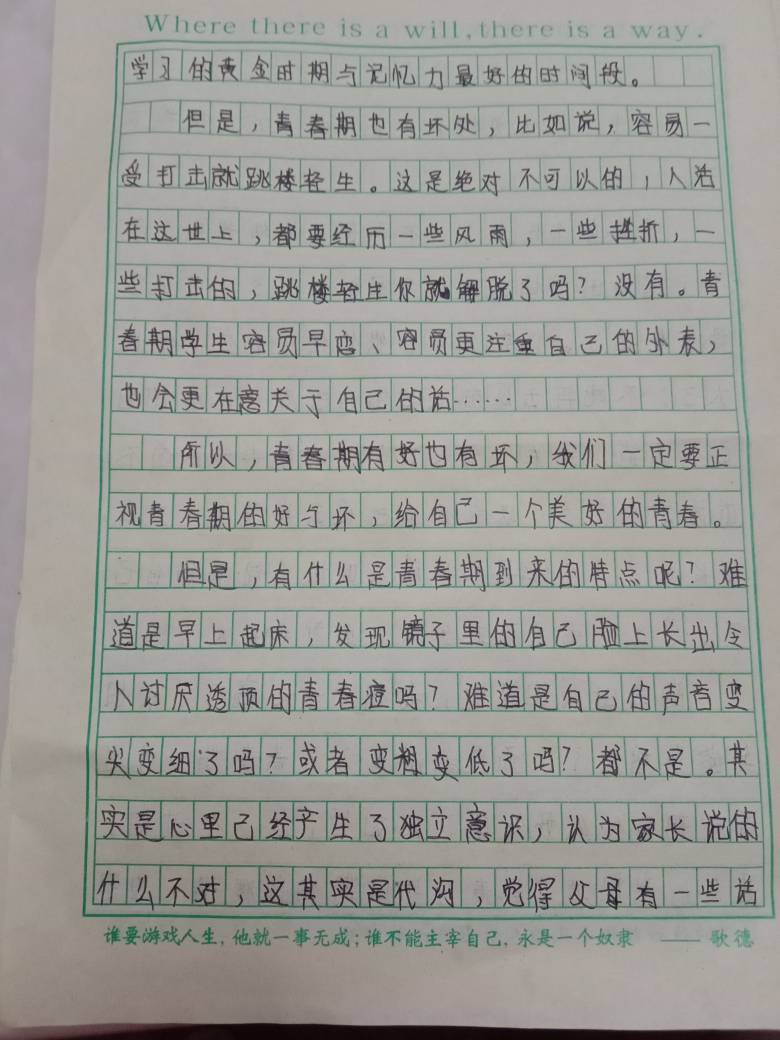 Where there is a will, there is a way.
学习的黄金时期与记忆力最好的时间段。
但是，青春期也有坏处，比如说，容易一
受打击就跳楼轻生。这是绝对不可以的，人活
在这世上，都要经历一些风雨，一些挫折，一
些打击的，跳楼轻生你就解脱了吗？没有。青
春期学生容易早恋、容易更注重自己的外表，
也会更在意关于自己的话……
所以，青春期有好也有坏，我们一定要正
视青春期的好与坏，给自己一个美好的青春。
但是，有什么是青春期到来的特点呢？难
道是早上起床，发现镜子里的自己脸上长出令
人讨厌透顶的青春痘吗？难道是自己的声音变
尖变细了吗？或者变粗变低了吗？都不是。其
实是心里已经产生了独立意识，认为家长说的
什么不对，这其实是代沟，觉得父母有一些话
谁要游戏人生，他就一事无成；谁不能主宰自己，永是一个奴隶 —— 歌德